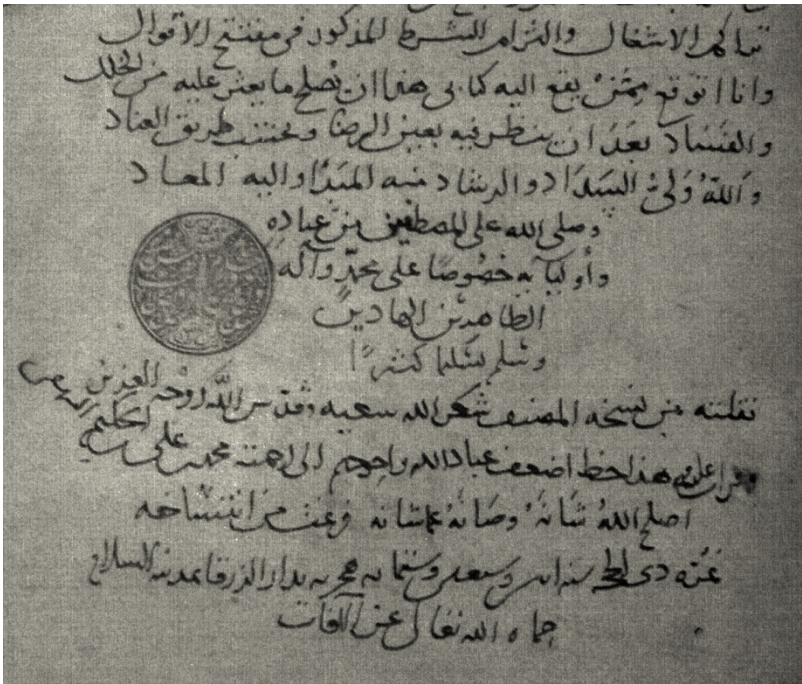 تراكم الاشغال والتزام الشرط المذكور في مفتتح الاقوال
وانا اتوقع ممن يقع اليه كتابي هذا ان يصلح ما يعثر عليه من الخلل
والفساد بعد ان ينظر فيه بعين الرضا ويجتنب طريق العناد
والله ولي السداد والرشاد منه المبدا واليه المعاد
وصلى الله على المصطفين من عباده
واوليائه خصوصا على محمد وآله
الطاهرين الهادين
وسلم تسليما كثيرا
نقلته من نسخة المصنف شكر الله سعيه وقدس الله روحه العزيز
هذا خط اضعف عباد الله واحوجهم الى رحمته محمد بن علي
اصلح الله شانه وصانه عما شانه فرغت من انتساخه
غرة ذي الحجة سنه وسبعين وستمايه هجريه بدار الزرقا بمدينة السلام
حماه الله تعالى عن الآفات